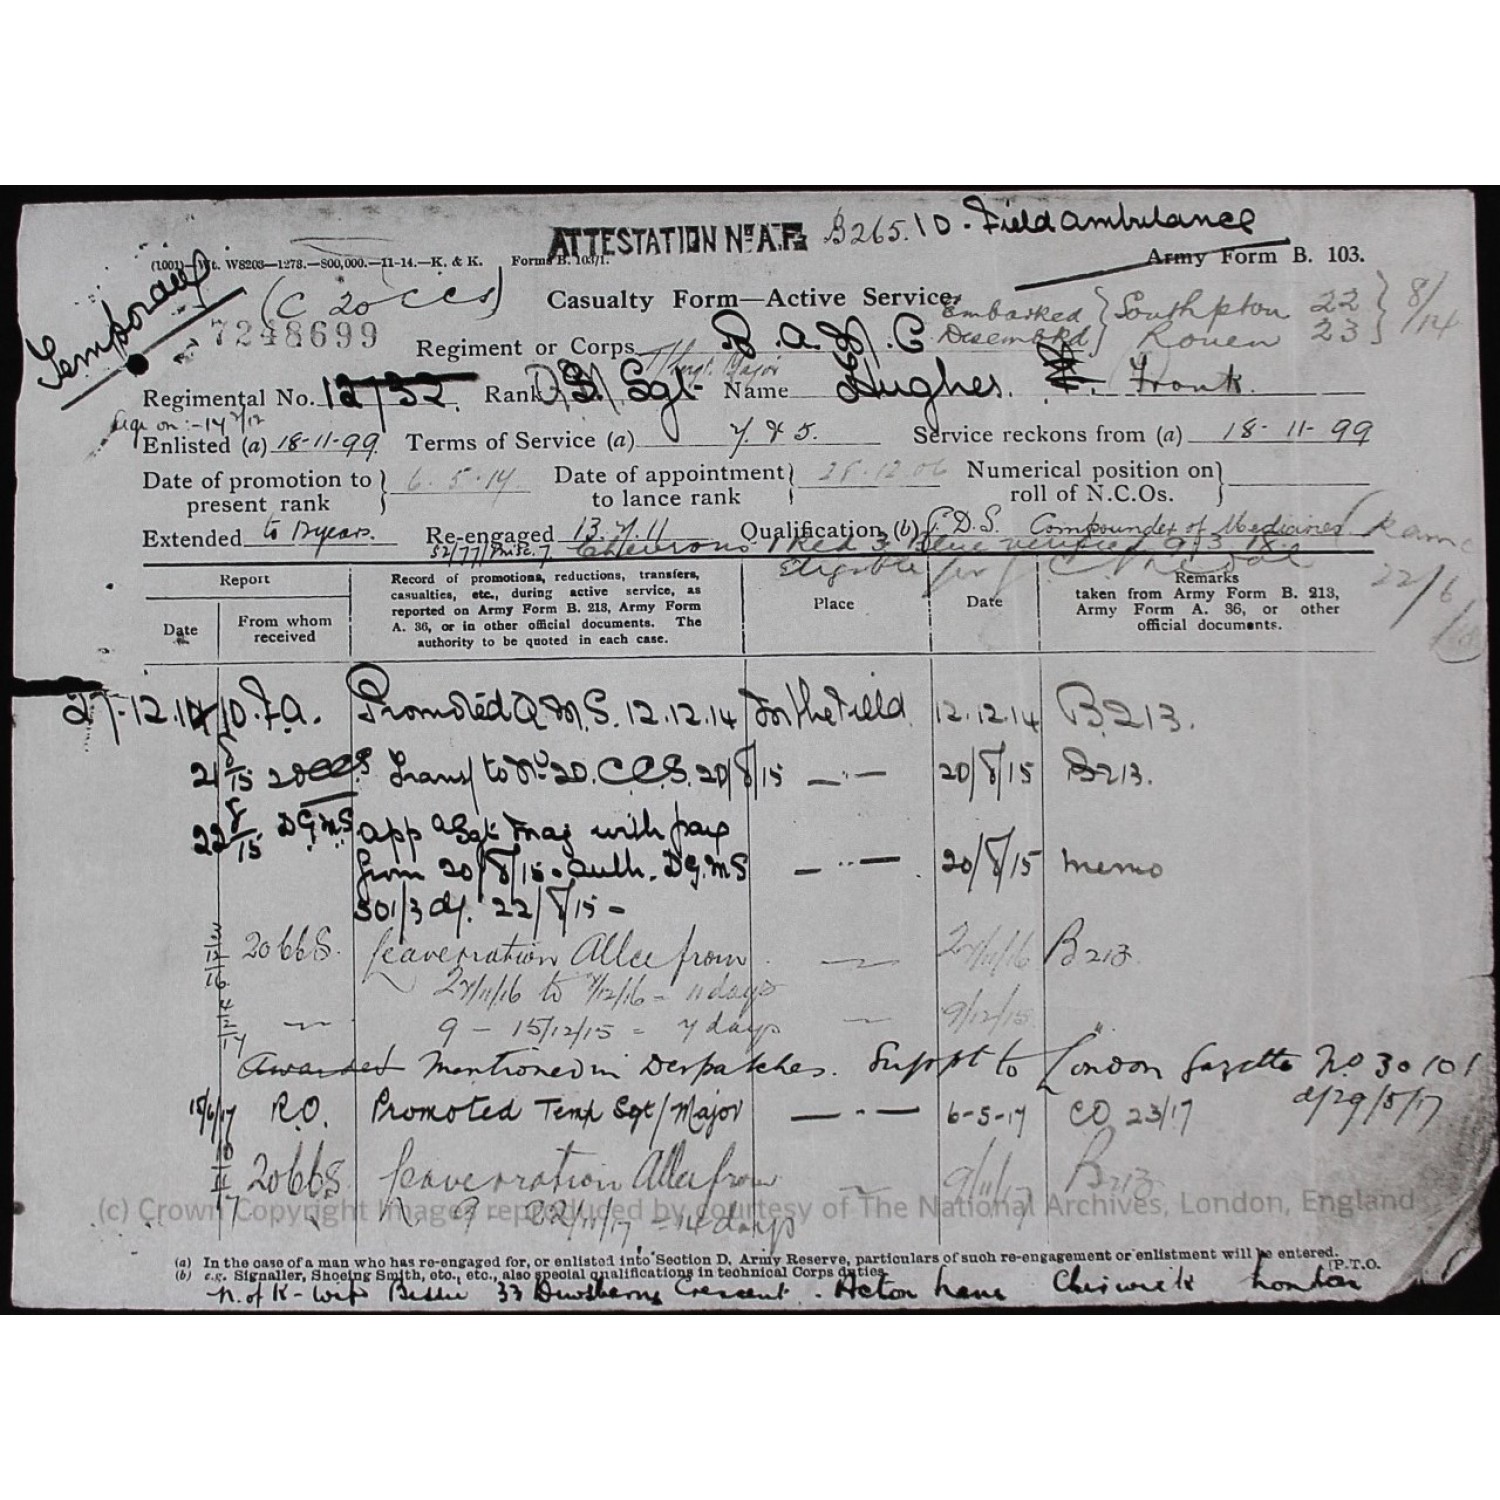 ATTESTATION No A.F. B265. 10. Field Ambulance
(1001)—Wt. W8203—1273.—800,000.—11-14.—K. & K. Forms B. 103/1. Army Form B. 103.
Temporary
(C 20 CCS)
Casualty Form—Active Service.
Embarked } Southpton 22 } 8/14
Disembkd } Rouen 23
7248699
Regiment or Corps R.A.M.C
T/Sergt. Major
Regimental No. 12732. Rank Sgt Name Hughes. F. Frank.
Enlisted (a) 18-11-99 Terms of Service (a) 7 & 5. Service reckons from (a) 18-11-99
Date of promotion to present rank } 6.5.14 Date of appointment to lance rank } 28.12.06 Numerical position on roll of N.C.Os. }
Extended to 12 years. Re-engaged 13.7.11 Qualification (b) Compounder of Medicines (RAMC
52/77/Misc.7 Chevrons 1 Red 3 Blue verified 9/3/18.
Eligible for
22/6/18
Report
Date
From whom received
Record of promotions, reductions, transfers, casualties, etc., during active service, as reported on Army Form B. 213, Army Form A. 36, or in other official documents. The authority to be quoted in each case.
Place
Date
Remarks taken from Army Form B. 213, Army Form A. 36, or other official documents.
27.12.14 10.F.A. Promoted Q.M.S. 12.12.14 In the Field 12.12.14 B.213.
21/8/15 20 CCS Transf to No 20. C.C.S. 20/8/15 —·— 20/8/15 B213.
22/8/15 DGMS app a Sgt Maj with pay
from 20/8/15. Auth. DGMS —··— 20/8/15 memo
501/3 d/. 22/8/15 -
3/12/16 20 CCS. Leave ration Allce from — 27/11/16 B213.
27/11/16 to 7/12/16 = 11 days
— 9 - 15/12/15 = 7 days — 9/12/15 "
Awarded Mentioned in Despatches. Supplt to London Gazette No 30101
d/29/5/17
15/6/17 R.O. Promoted Temp Sgt/Major —·— 6-5-17 CO 23/17
10/11/17 20 CCS Leave ration Allce from — 9/11/17 B213
9 - 22/11/17 = 14 days
(c) Crown Copyright Images reproduced by courtesy of The National Archives, London, England
(a) In the case of a man who has re-engaged for, or enlisted into Section D, Army Reserve, particulars of such re-engagement or enlistment will be entered.
(b) e.g. Signaller, Shoeing Smith, etc., etc., also special qualifications in technical Corps duties. [P.T.O.
N. of K - Wife Bessie 33 Dewsberry Crescent. Acton Lane Chiswick London